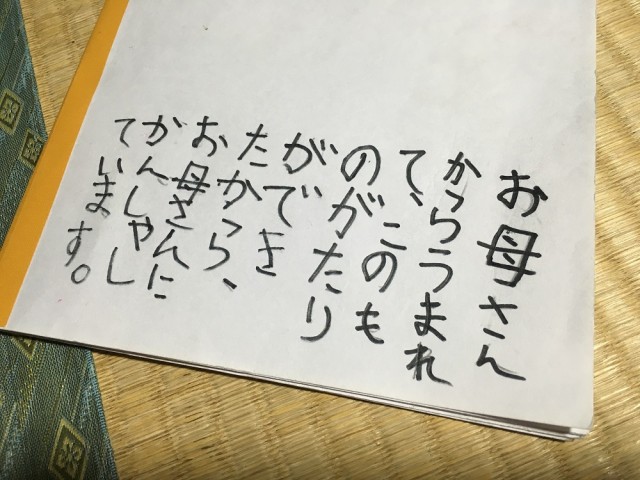 お母さん
からうまれ
て、このも
のがたり
ができ
たから、
お母さんに
かんしゃし
ています。